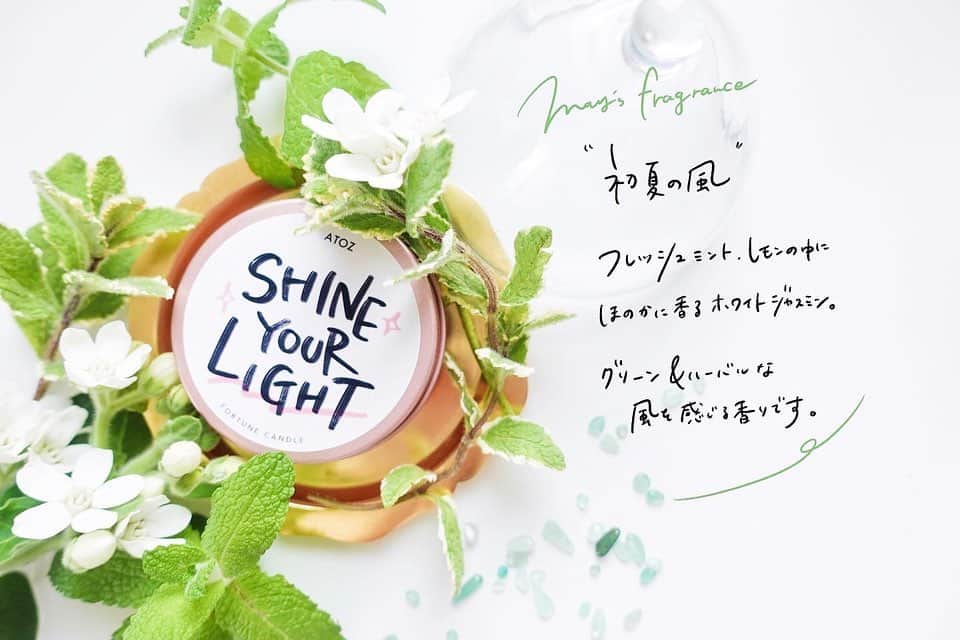 ATOZ
SHINE
YOUR
LIGHT
FORTUNE CANDLE
May's fragrance
"初夏の風"
フレッシュミント、レモンの中に
ほのかに香るホワイトジャスミン。
グリーン&ハーバルな
風を感じる香りです。